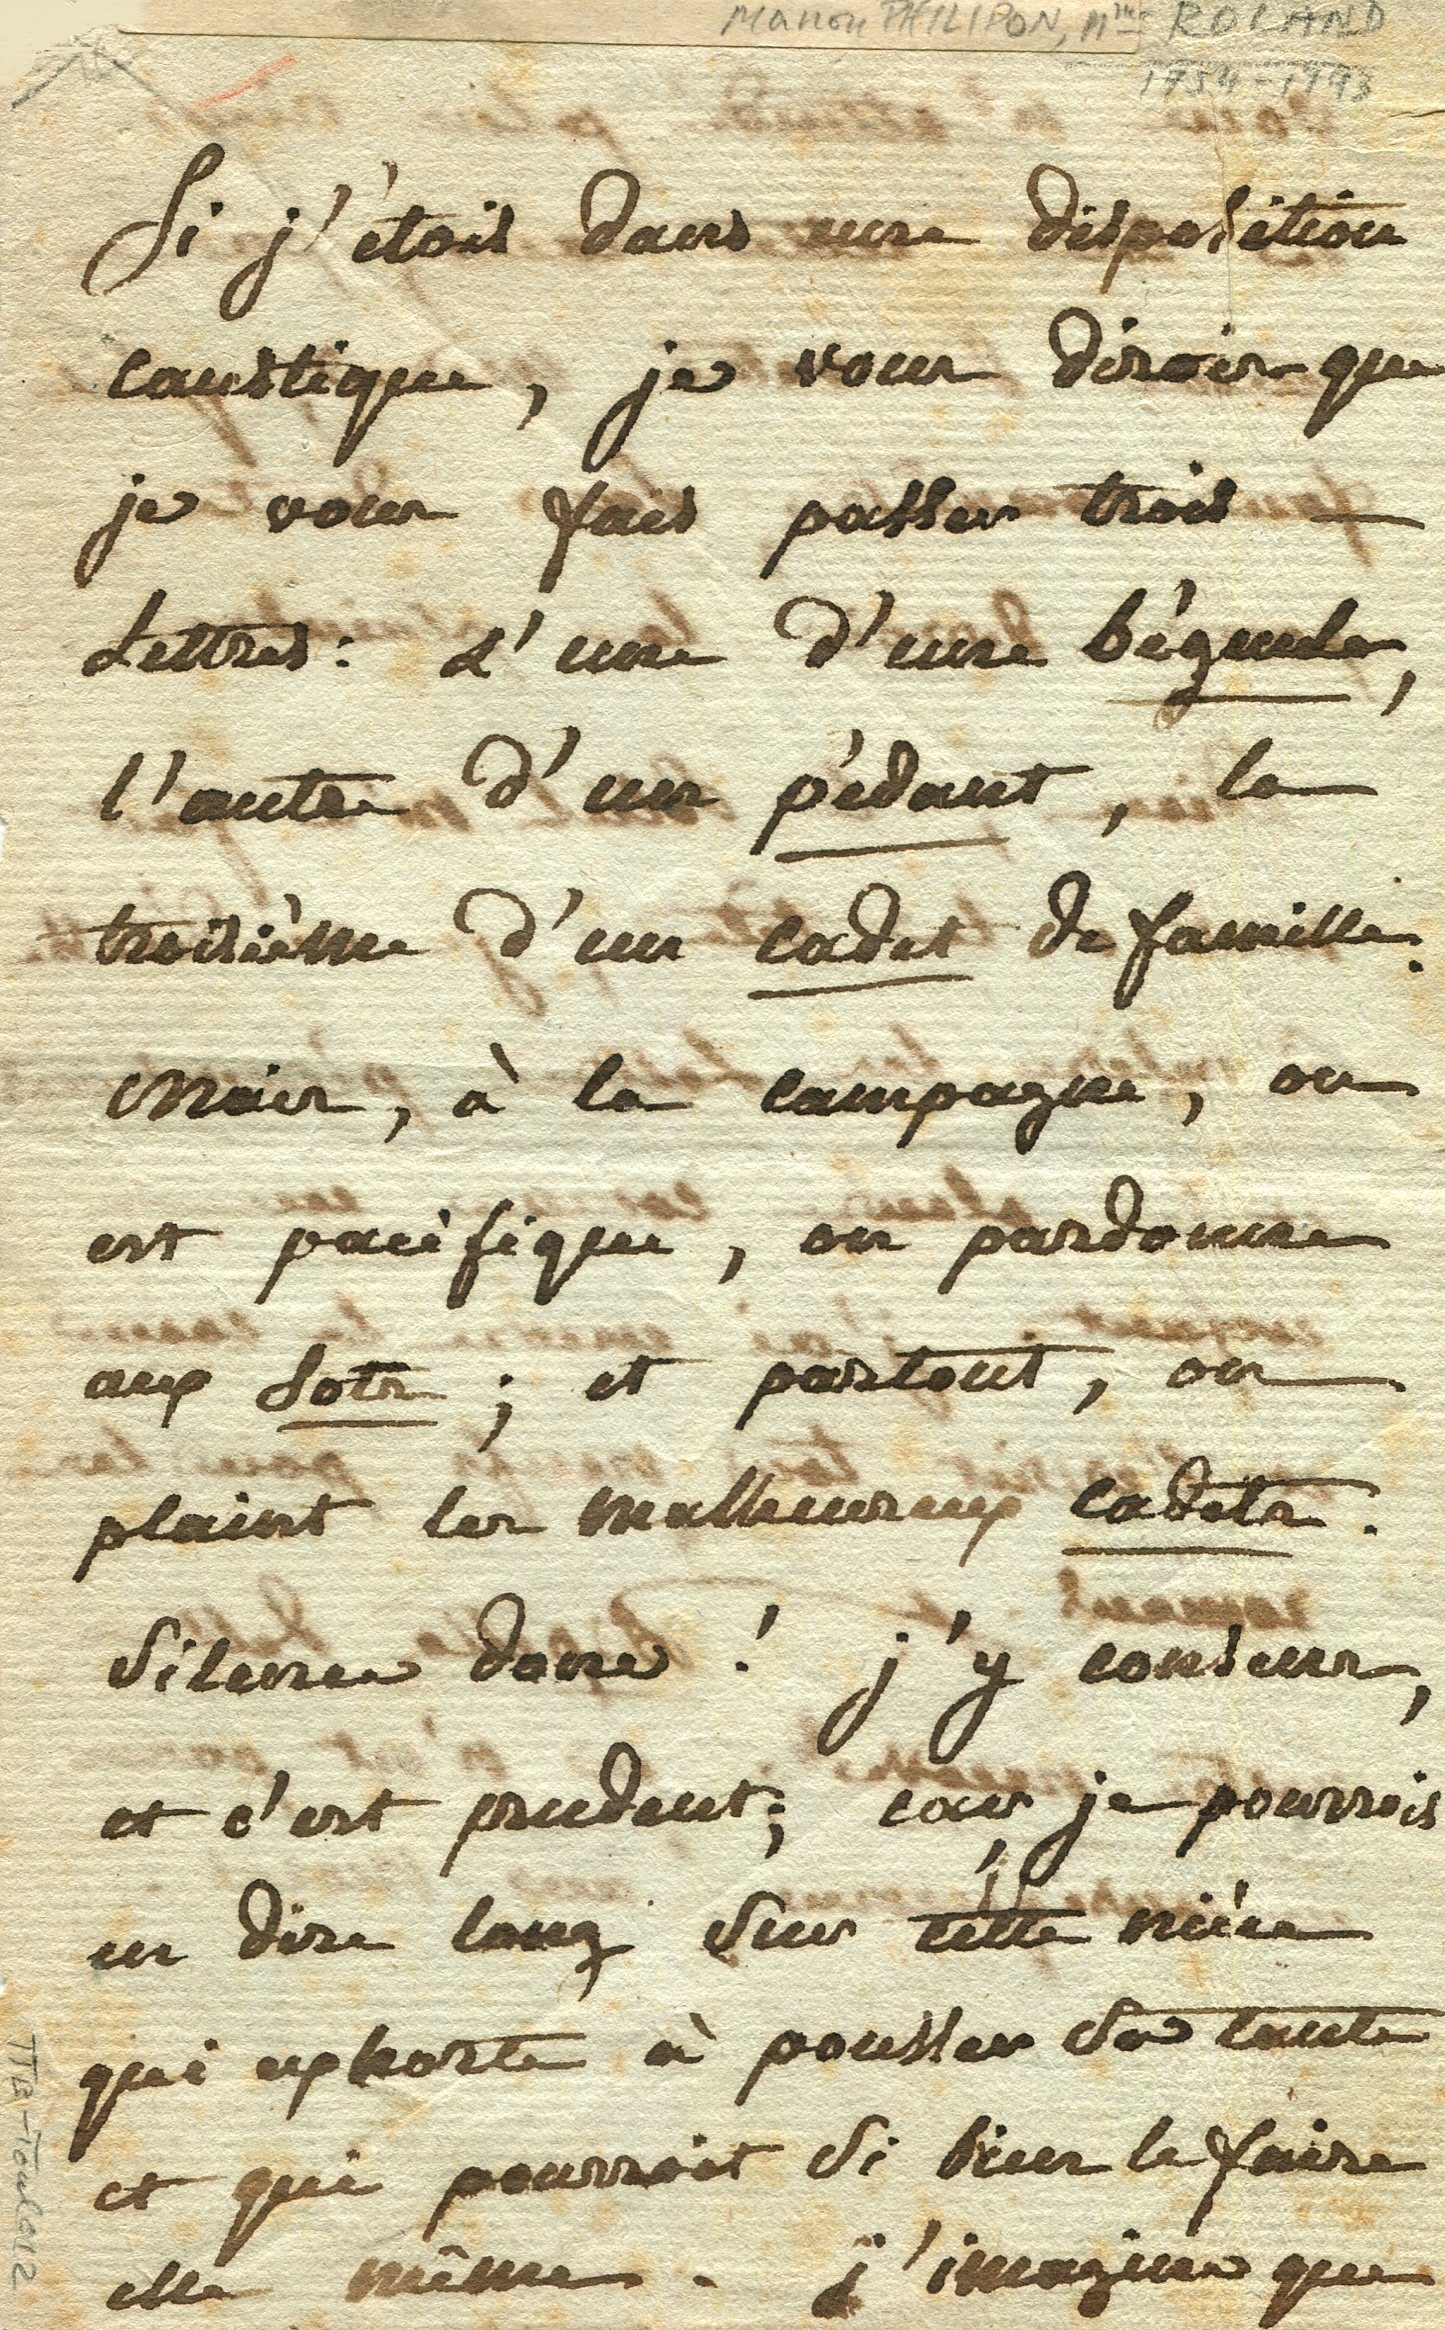 Manon PHILIPON, Mme ROLAND
1754-1793
Si j'étois dans une disposition
caustique, je vous dirois que
je vous fais passer trois —
Lettres: L'une d'une bégueule,
l'autre d'un pédant, la
troisième d'un cadet de famille.
Mais, à la campagne, on
est pacifique, on pardonne
aux Sots; et partout, on
plaint les malheureux cadets.
Silence donc! j'y consens,
et c'est prudent; car je pourrois
en dire long Sur cette nièce
qui exhorte à pousser Sa tante
et qui pourroit Si bien le faire
elle même. J'imagine que